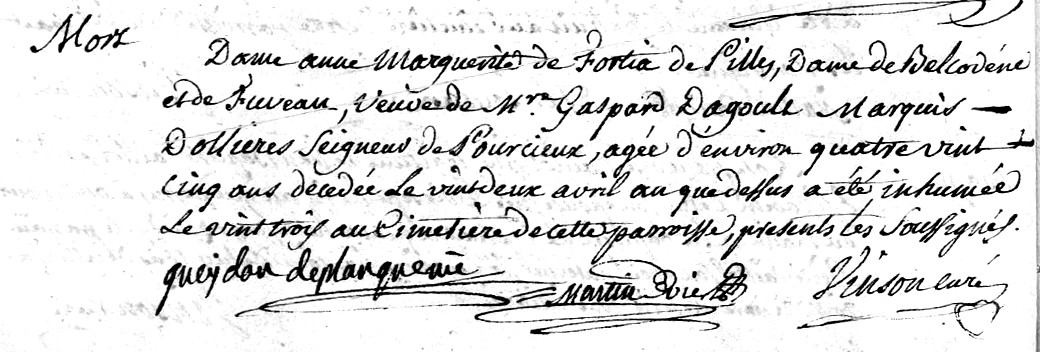 Mort
Dame anne Marguerite de Fortia de Pilles, Dame de Belcodéne
et de Fuveau, veuve de Mre. Gaspard Dagoult Marquis
Dollieres Seigneur de Pourcieux, agée d'énviron quatre vint
Cinq ans décedée Le vint deux avril an que dessus a été inhumée
Le vint trois au Cimetière de cette parroisse, presents les Soussignés.
queydon
Martin Vinson curé